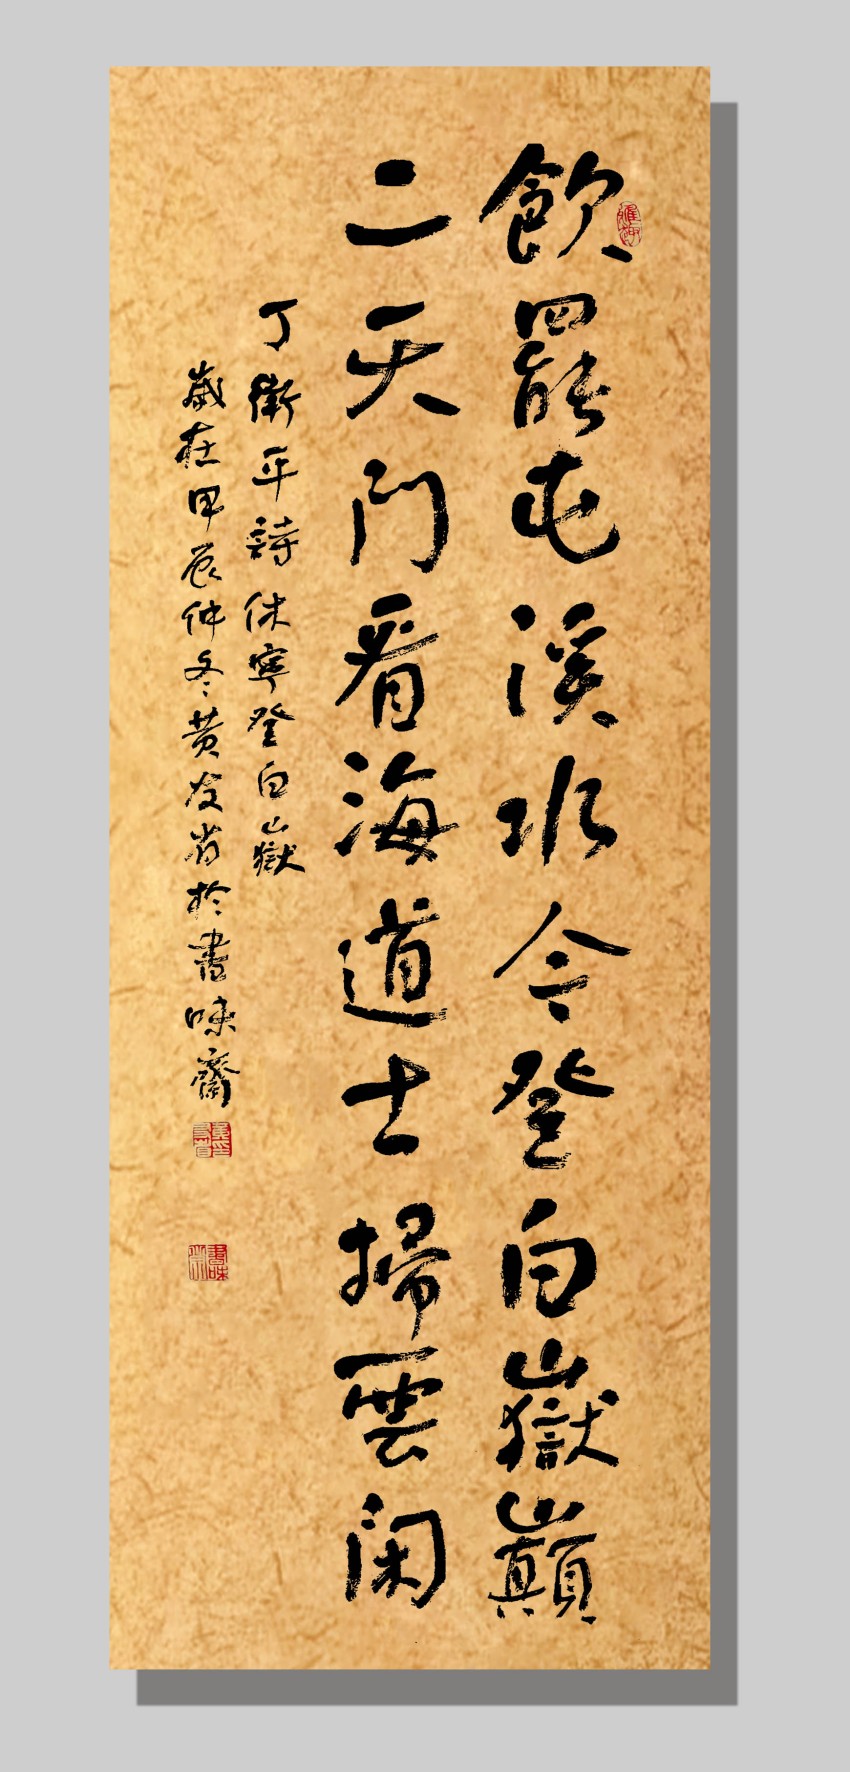 飲罷屯溪水今登白嶽巔
二天門看海道士掃雲閑
丁衛平詩休寧登白嶽
歲在甲辰仲冬黄友省於書味齋